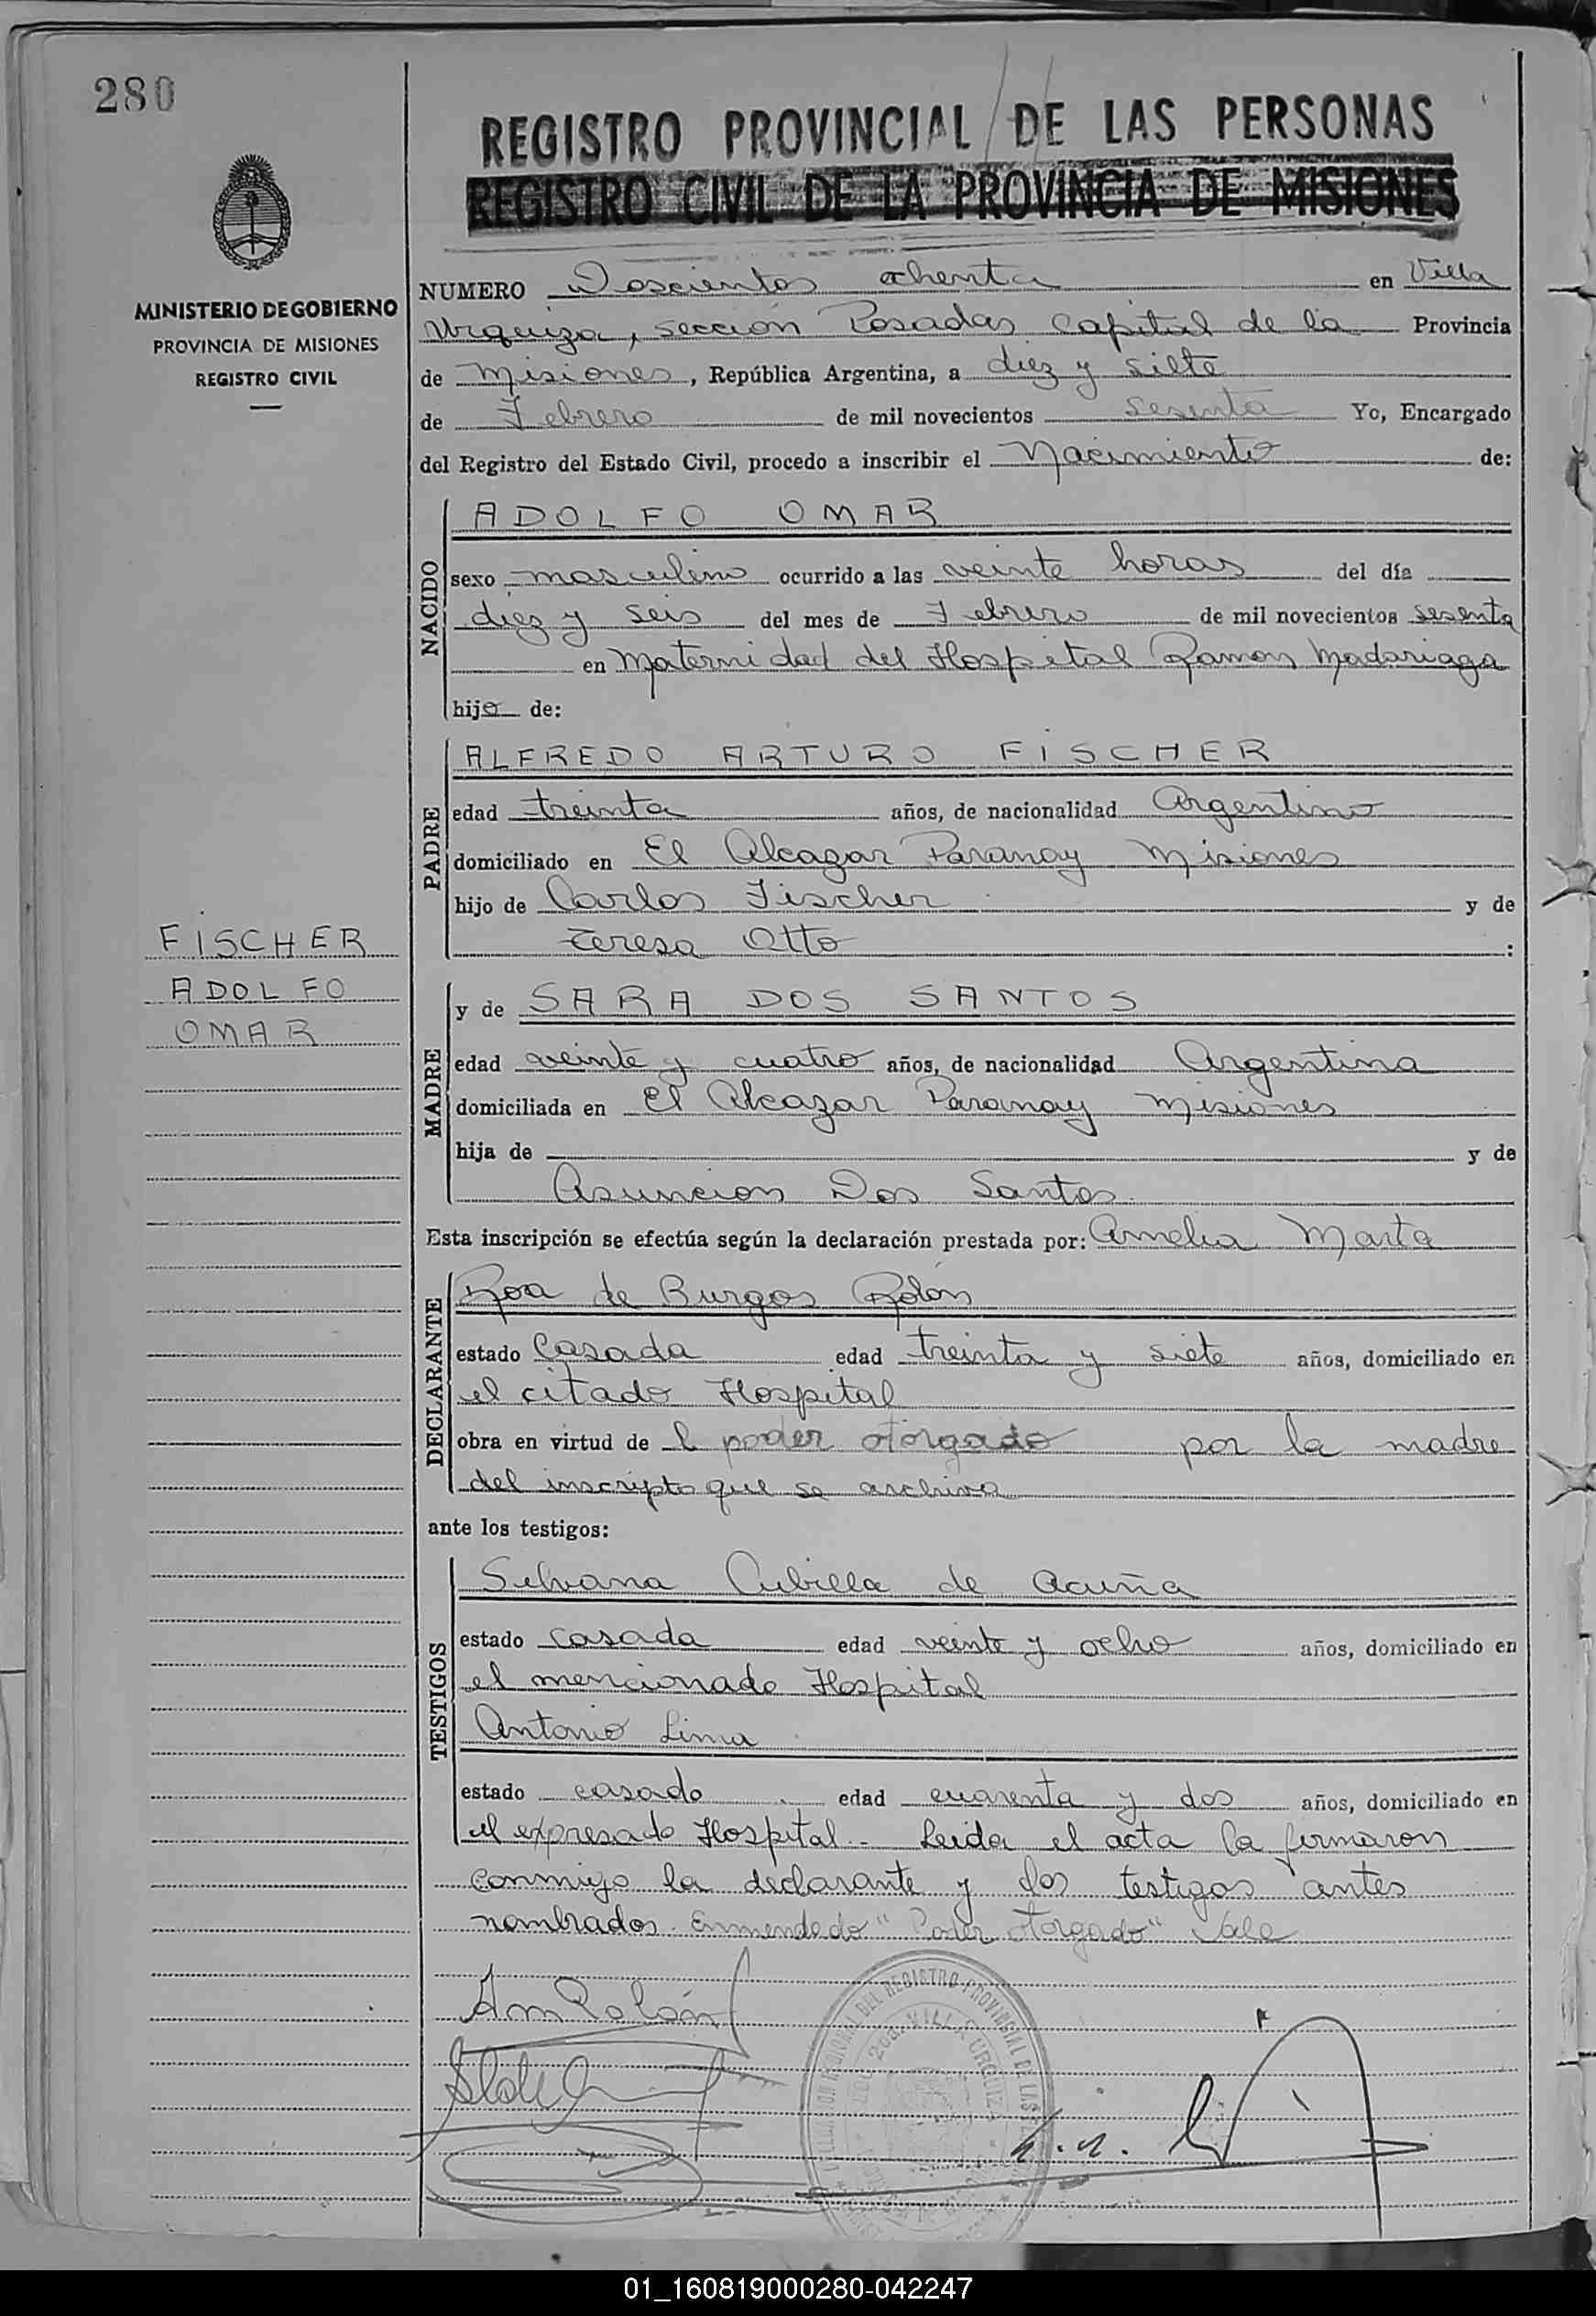 280
REGISTRO PROVINCIAL DE LAS PERSONAS
REGISTRO CIVIL DE LA PROVINCIA DE MISIONES
MINISTERIO DE GOBIERNO
PROVINCIA DE MISIONES
REGISTRO CIVIL
NUMERO Doscientos ochenta en Villa
Urquiza, sección Posadas Capital de la Provincia
de Misiones, República Argentina, a diez y siete
de Febrero de mil novecientos sesenta Yo, Encargado
del Registro del Estado Civil, procedo a inscribir el Nacimiento de:
NACIDO
ADOLFO OMAR
sexo masculino ocurrido a las veinte horas del día
diez y seis del mes de Febrero de mil novecientos sesenta
en Maternidad del Hospital Ramon Madariaga
hijo de:
PADRE
ALFREDO ARTURO FISCHER
edad treinta años, de nacionalidad Argentino
domiciliado en El Alcazar Paranay Misiones
hijo de Carlos Fischer y de
Teresa Otto :
FISCHER
ADOLFO
OMAR
MADRE
y de SARA DOS SANTOS
edad veinte y cuatro años, de nacionalidad Argentina
domiciliada en El Alcazar Paranay Misiones
hija de y de
Asuncion Dos Santos
Esta inscripción se efectúa según la declaración prestada por: Amelia Marta
DECLARANTE
Roa de Burgos Rolón
estado Casada edad treinta y siete años, domiciliado en
el citado Hospital
obra en virtud de l poder otorgado por la madre
del inscripto que se archiva
ante los testigos:
TESTIGOS
Silvana Cubilla de Acuña
estado casada edad veinte y ocho años, domiciliado en
el mencionado Hospital
Antonio Lima
estado casado edad cuarenta y dos años, domiciliado en
el expresado Hospital.- Leida el acta la firmaron
conmigo la declarante y los testigos antes
nombrados. Enmendado "Poder otorgado" Vale
Am Rolón
REGISTRO PROVINCIAL DE LAS
VILLA URQUIZA
01_160819000280-042247